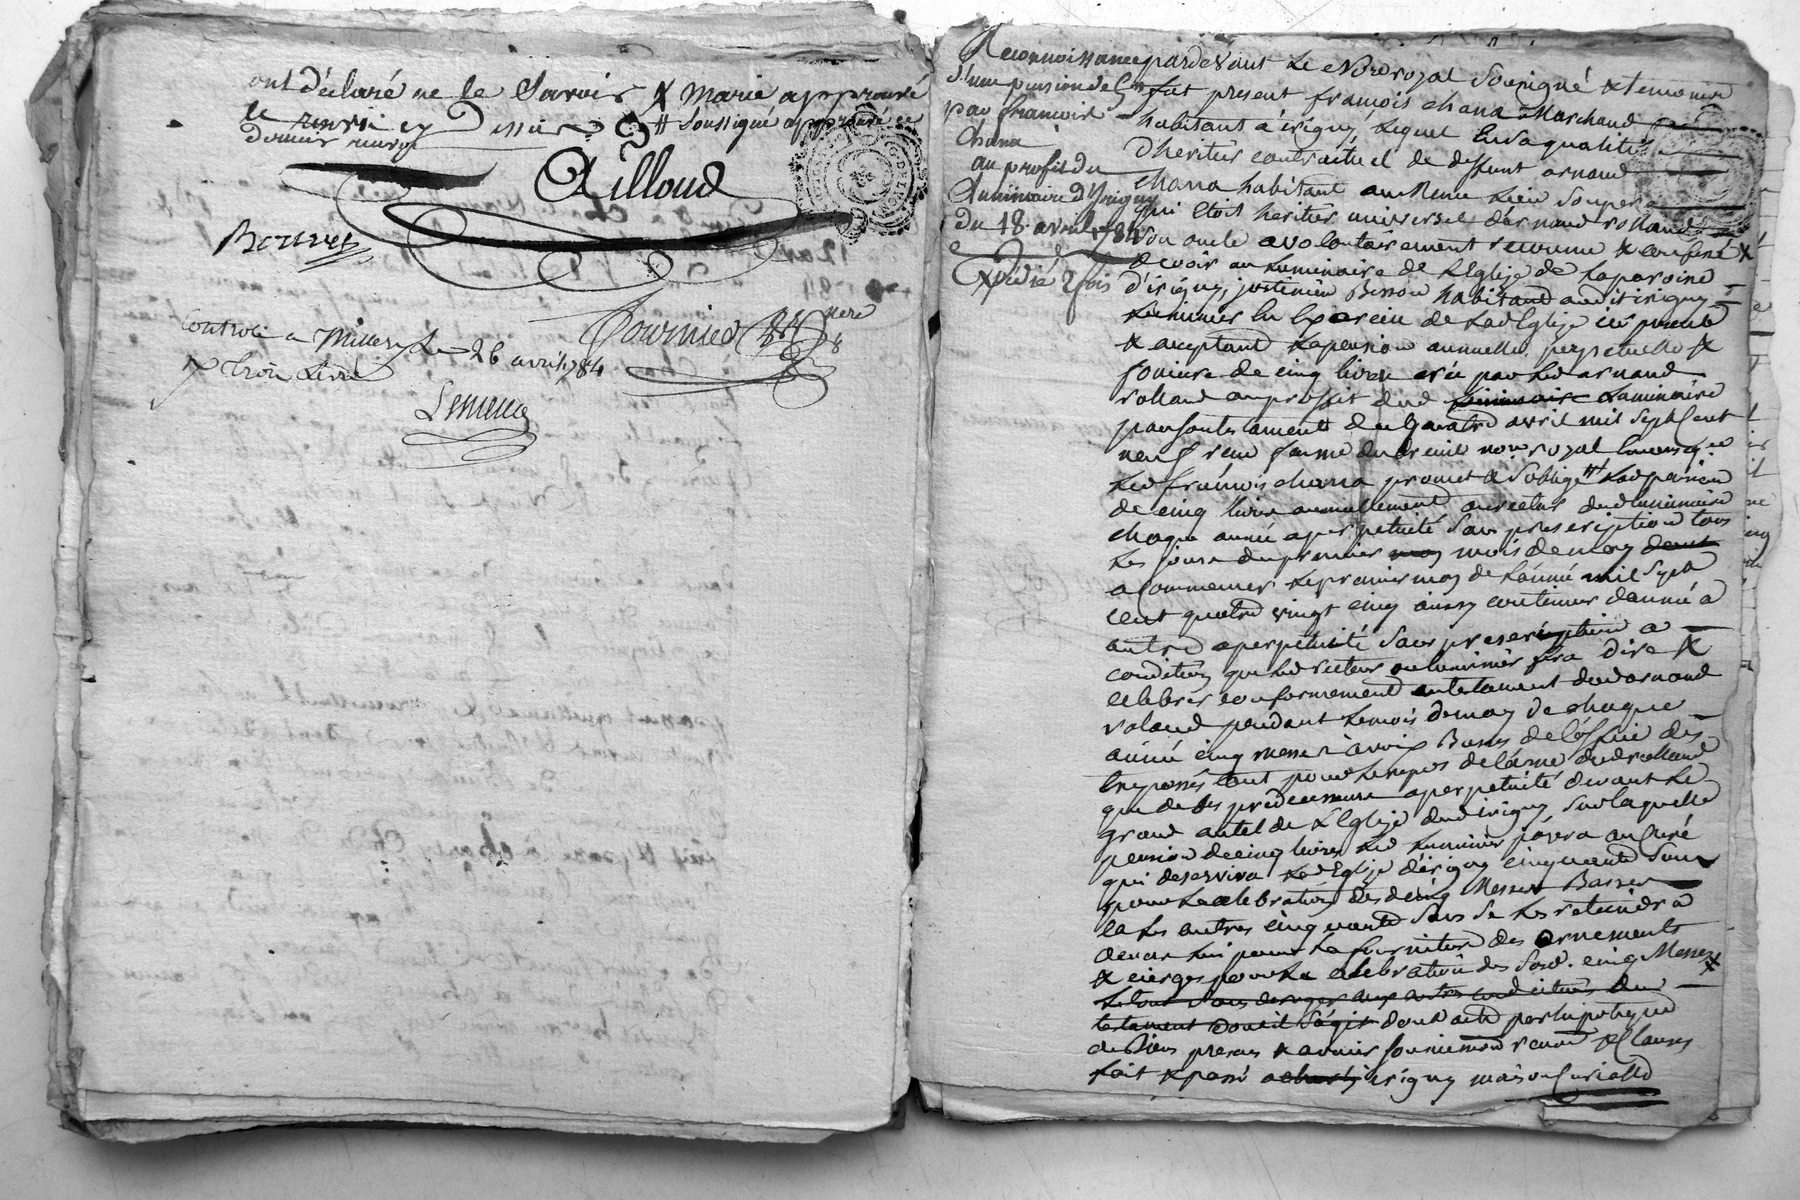 ont déclaré ne le Savoir & Marie approuvé
le renvoi cy dessus # Soussigné approuvé ce
dernier renvoy
Ailloud
Bouvet
Controlé a Millery Le 26 avril 1784
trois Livres
Reconnoissance
d'une pension de 5ᴸ
par francois
Chana
au profit du
Luminaire d'Yrigny
du 18 avril 1784
Expédié 2 fois
pardevant Le Nore royal Soussigné & temoins
fut present françois chana Marchand
habitant a irigny, Lequel En sa qualité
D'heritier contractuel de deffunt arnaud
chana habitant au Meme Lieu Son pere
qui Etoit heritier universel d'arnaud rolland
Son oncle a volontairement reconnu & confessé
devoir au Luminaire de L'Eglise de La paroisse
d'irigny, justinien Bisson habitant audit irigny
Luminier En Exercice de Lad Eglise icy present
& acceptant La pension annuelle, perpetuelle &
fonciere de cinq livres créé par Led arnaud
rolland au proffit dud Luminaire
par son testament du quatre avril mil Sept Cent
neuf recu par me dutreuil nore royal
Led françois chana promet & S'oblige Lad pension
de cinq livres annuellement au recteur dud luminaire
chaque année a perpetuité Sans prescription tous
Les jours du premier may mois de may dont
a Commencer Le premier may de L'année mil Sept
cent quatre vingt cinq ainsy continuer d'année a
autre a perpetuité Sans prescription a
condition que Led recteur ou luminier fera dire &
celebrer conformement au testament dud arnaud
roland pendant Le mois de may de chaque
année cinq messes a voix Basses de L'office des
trepassés tant pour Le repos de L'ame dud rolland
que de Ses predecesseurs a perpetuité devant Le
grand autel de L'Eglise dud irigny, Sur laquelle
pension de cinq livres Led Luminier payera au Curé
qui deservira Lad Eglise d'irigny cinquante Sous
pour La celebration desd cinq Messes Basses
Et Les autres cinquante Sous Se Les retiendra
devers Lui pour La fourniture des ornements
& cierges pour La celebration des Susd. cinq Messes
Le tout Sans deroger aux autres conditions du
testament dont il S'agit dont acte
de Biens presens & avenir Soumissions renon & Clauses
fait & passé a irigny maison Curialle